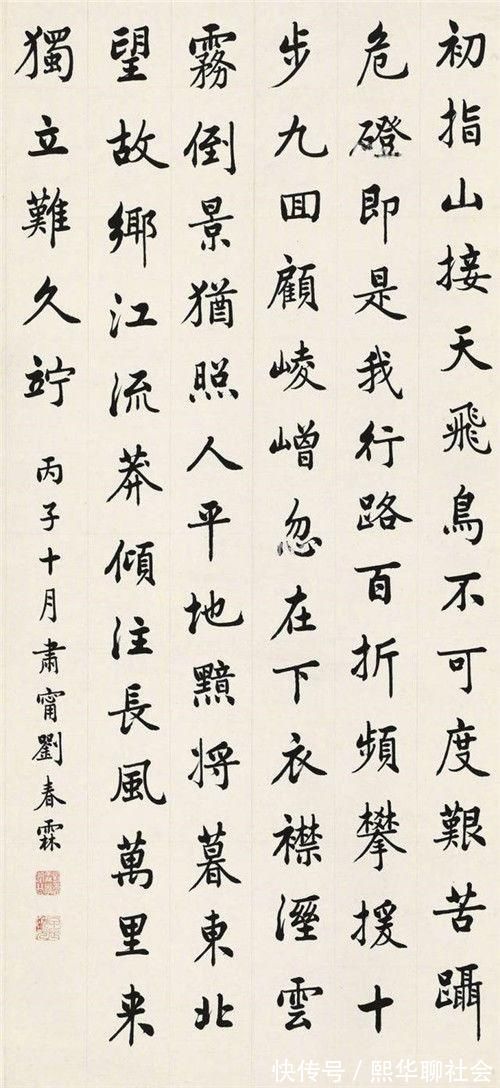 初指山接天飛鳥不可度艱苦躡
危磴即是我行路百折頻攀援十
步九回顧崚嶒忽在下衣襟溼雲
霧倒景猶照人平地黯將暮東北
望故鄉江流莽傾注長風萬里来
獨立難久竚
丙子十月肅甯劉春霖
快传号/熙华聊社会